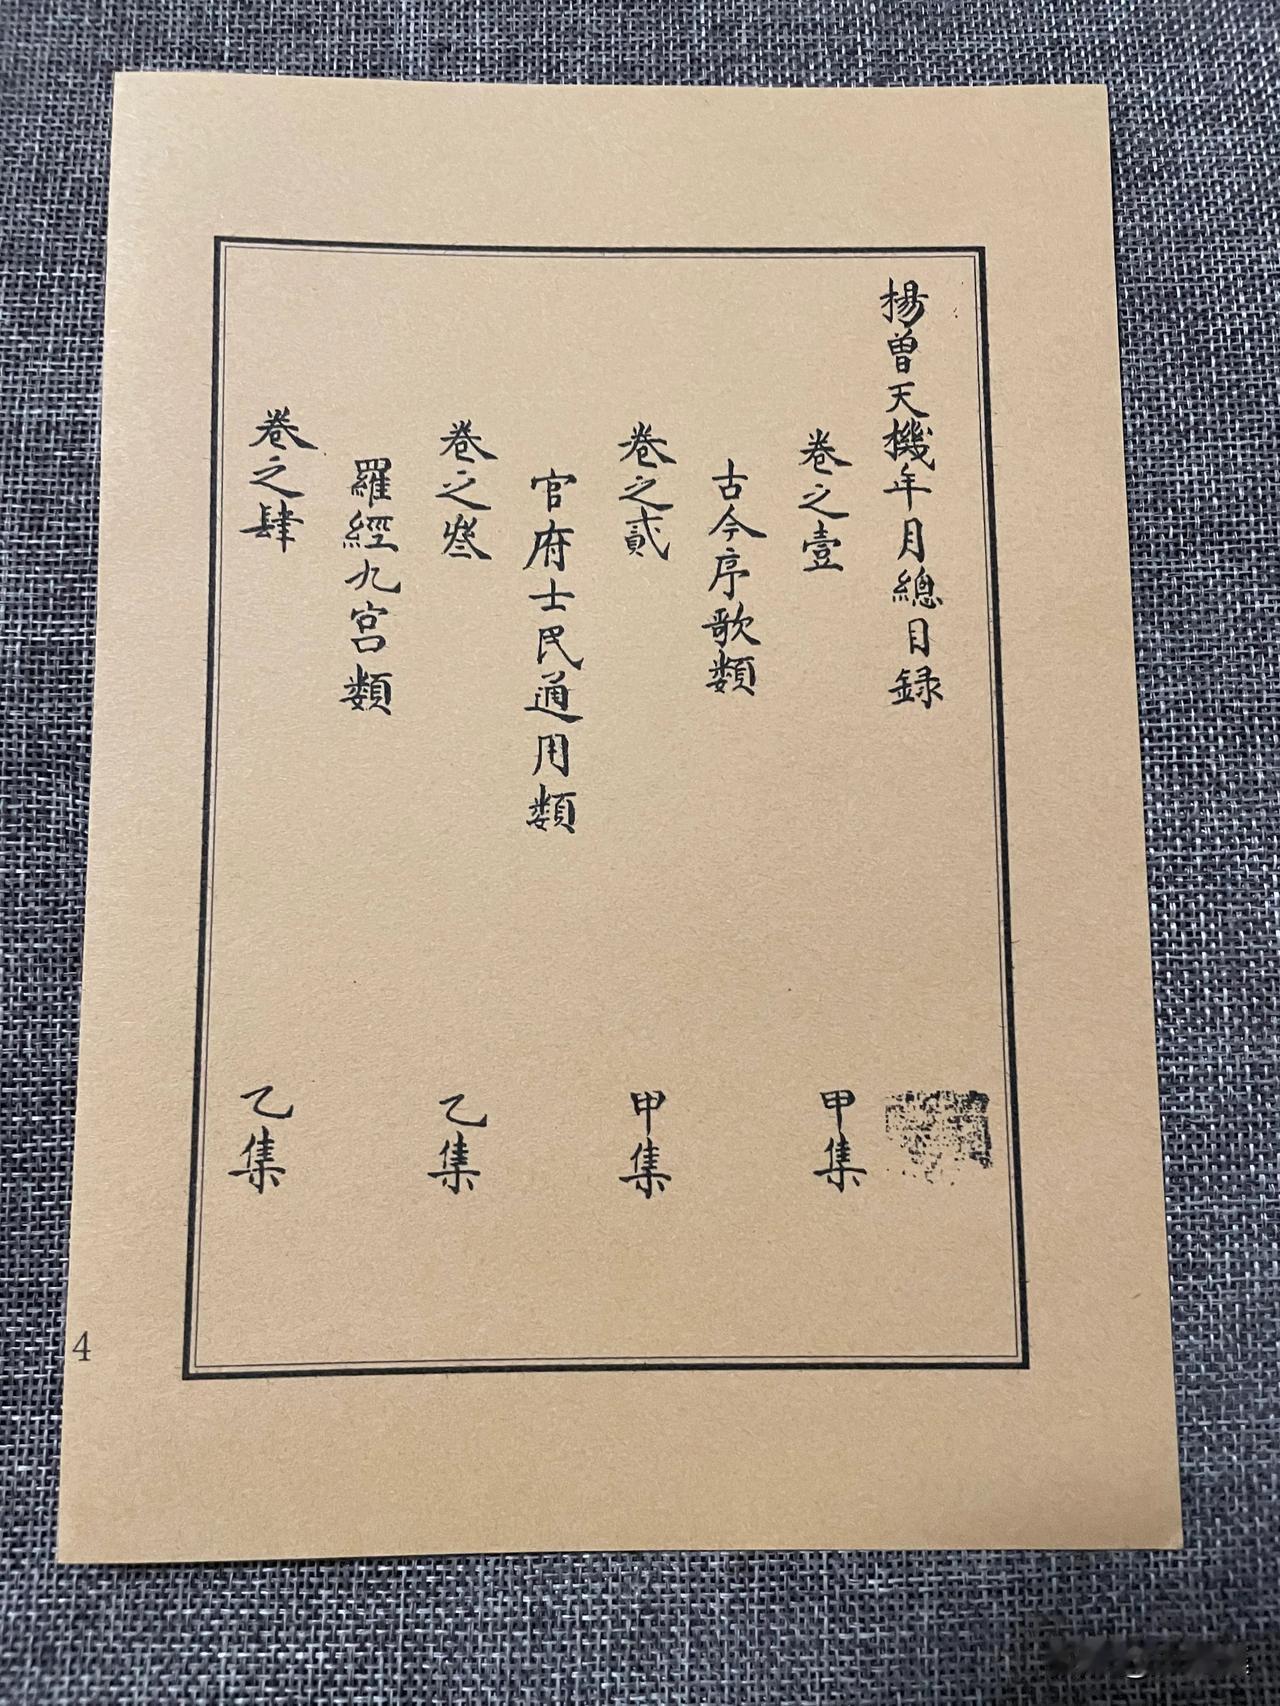 楊曾天機年月總目録
卷之壹 甲集
古今序歌類
卷之貳 甲集
官府士民通用類
卷之叁 乙集
羅經九宮類
卷之肆 乙集
4